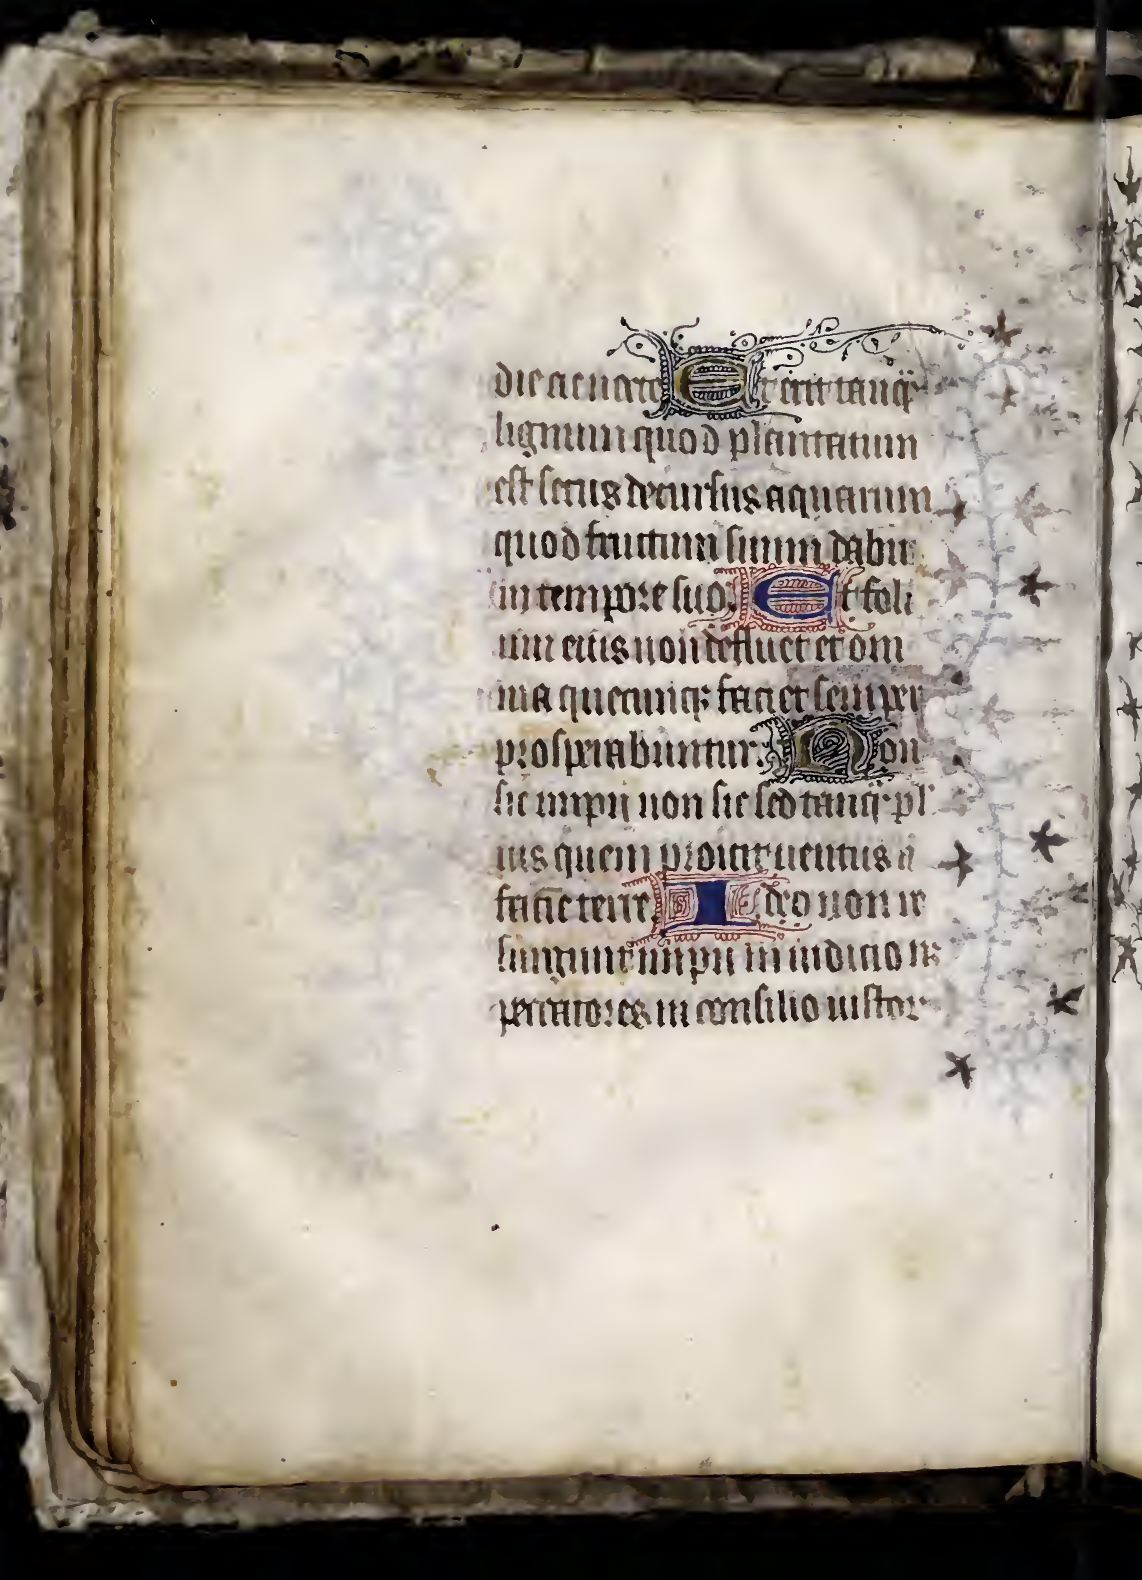 die ac nocte Et erit tanq̃
lignum quod plantatum
est secus decursus aquarum
quod fructum suum dabit
in tempore suo. Et foli
um eius non defluet et om
nia quecunqꝫ faciet semper
prosperabuntur. Non
sic impii non sic sed tanq̃ pul
uis quem proicit uentus a
facie terre. Ideo non re
surgunt impii in iudicio neqꝫ
peccatores in consilio iustor